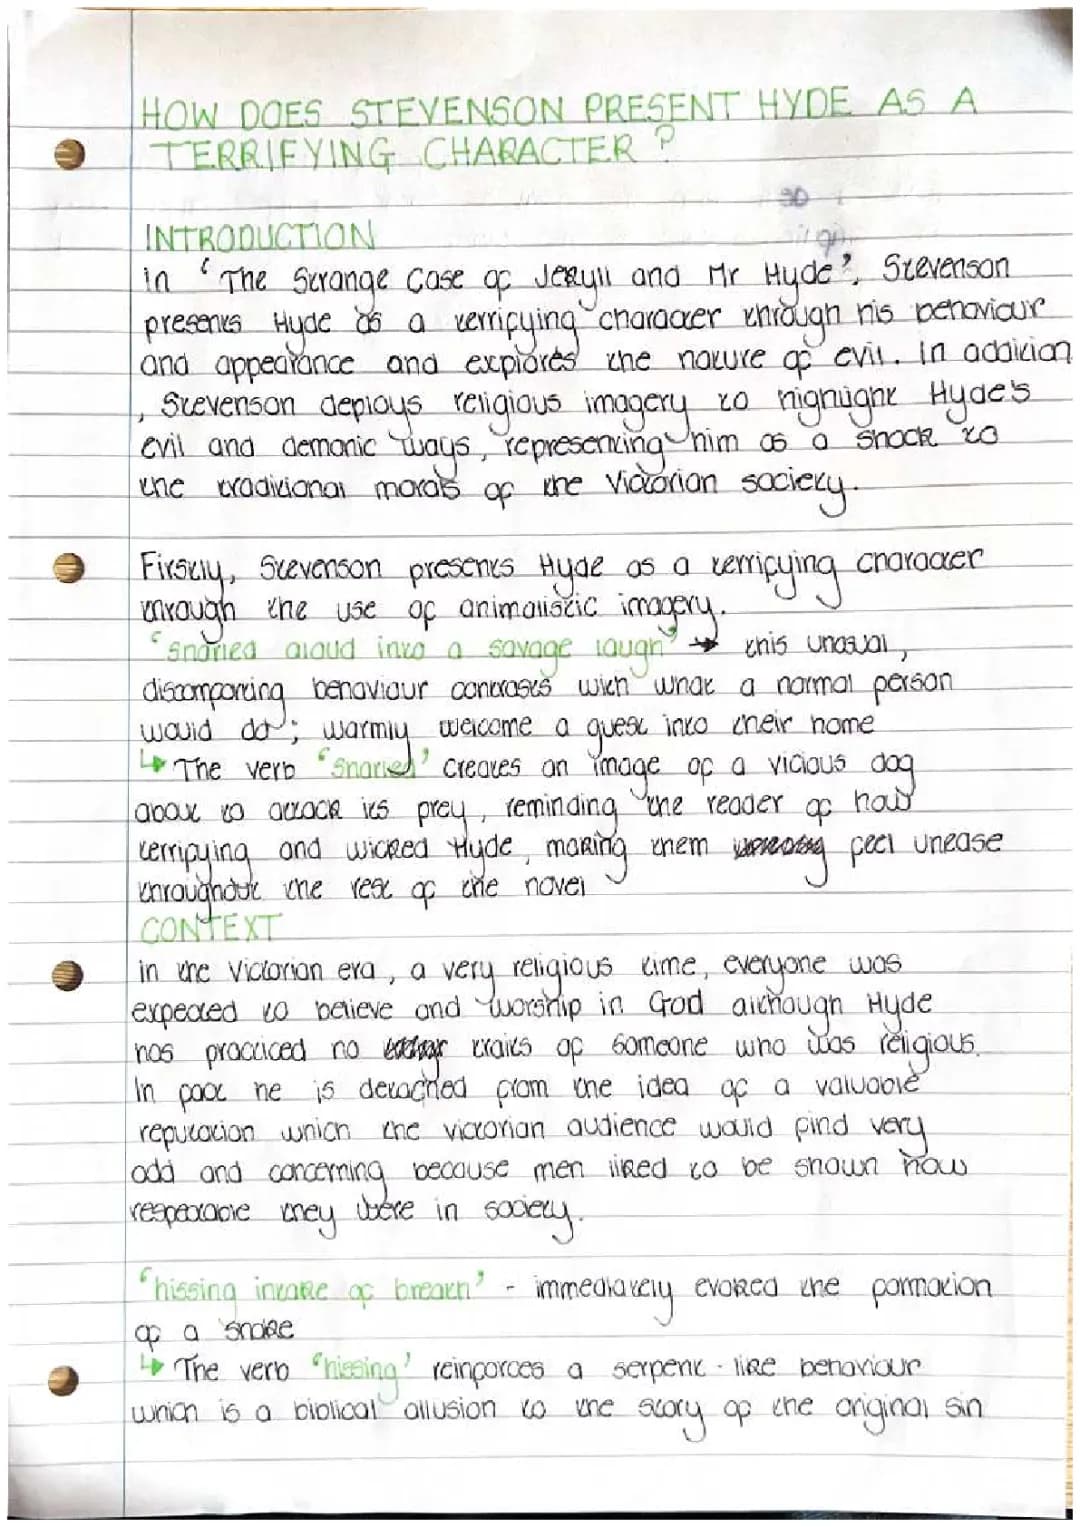 HOW DOES STEVENSON PRESENT HYDE AS A
TERRIFYING CHARACTER?
INTRODUCTION
In 'The Strange Case of Jekyll and Mr Hyde', Stevenson
presents Hyde as a terrifying character through his behaviour
and appearance and explores the nature of evil. In addition
, Stevenson deploys religious imagery to highlight Hyde's
evil and demonic ways, representing him as a shock to
the traditional morals of the Victorian society.
Firstly, Stevenson presents Hyde as a terrifying character
through the use of animalistic imagery.
'Snarled aloud into a savage laugh' → this unusual,
discomforting behaviour contrasts with what a normal person
would do; warmly welcome a guest into their home
↳ The verb 'Snarled' creates an image of a vicious dog
about to attack its prey, reminding the reader of how
terrifying and wicked Hyde, making them feel unease
throughout the rest of the novel
CONTEXT
in the Victorian era, a very religious time, everyone was
expected to believe and worship in God although Hyde
has practiced no traits of someone who was religious.
In fact he is detached from the idea of a valuable
reputation which the victorian audience would find very
odd and concerning because men liked to be shown how
respectable they were in society.
'hissing intake of breath' - immediately evoked the formation
of a snake
↳ The verb 'hissing' reinforces a serpent-like behaviour
which is a biblical allusion to the story of the original sin